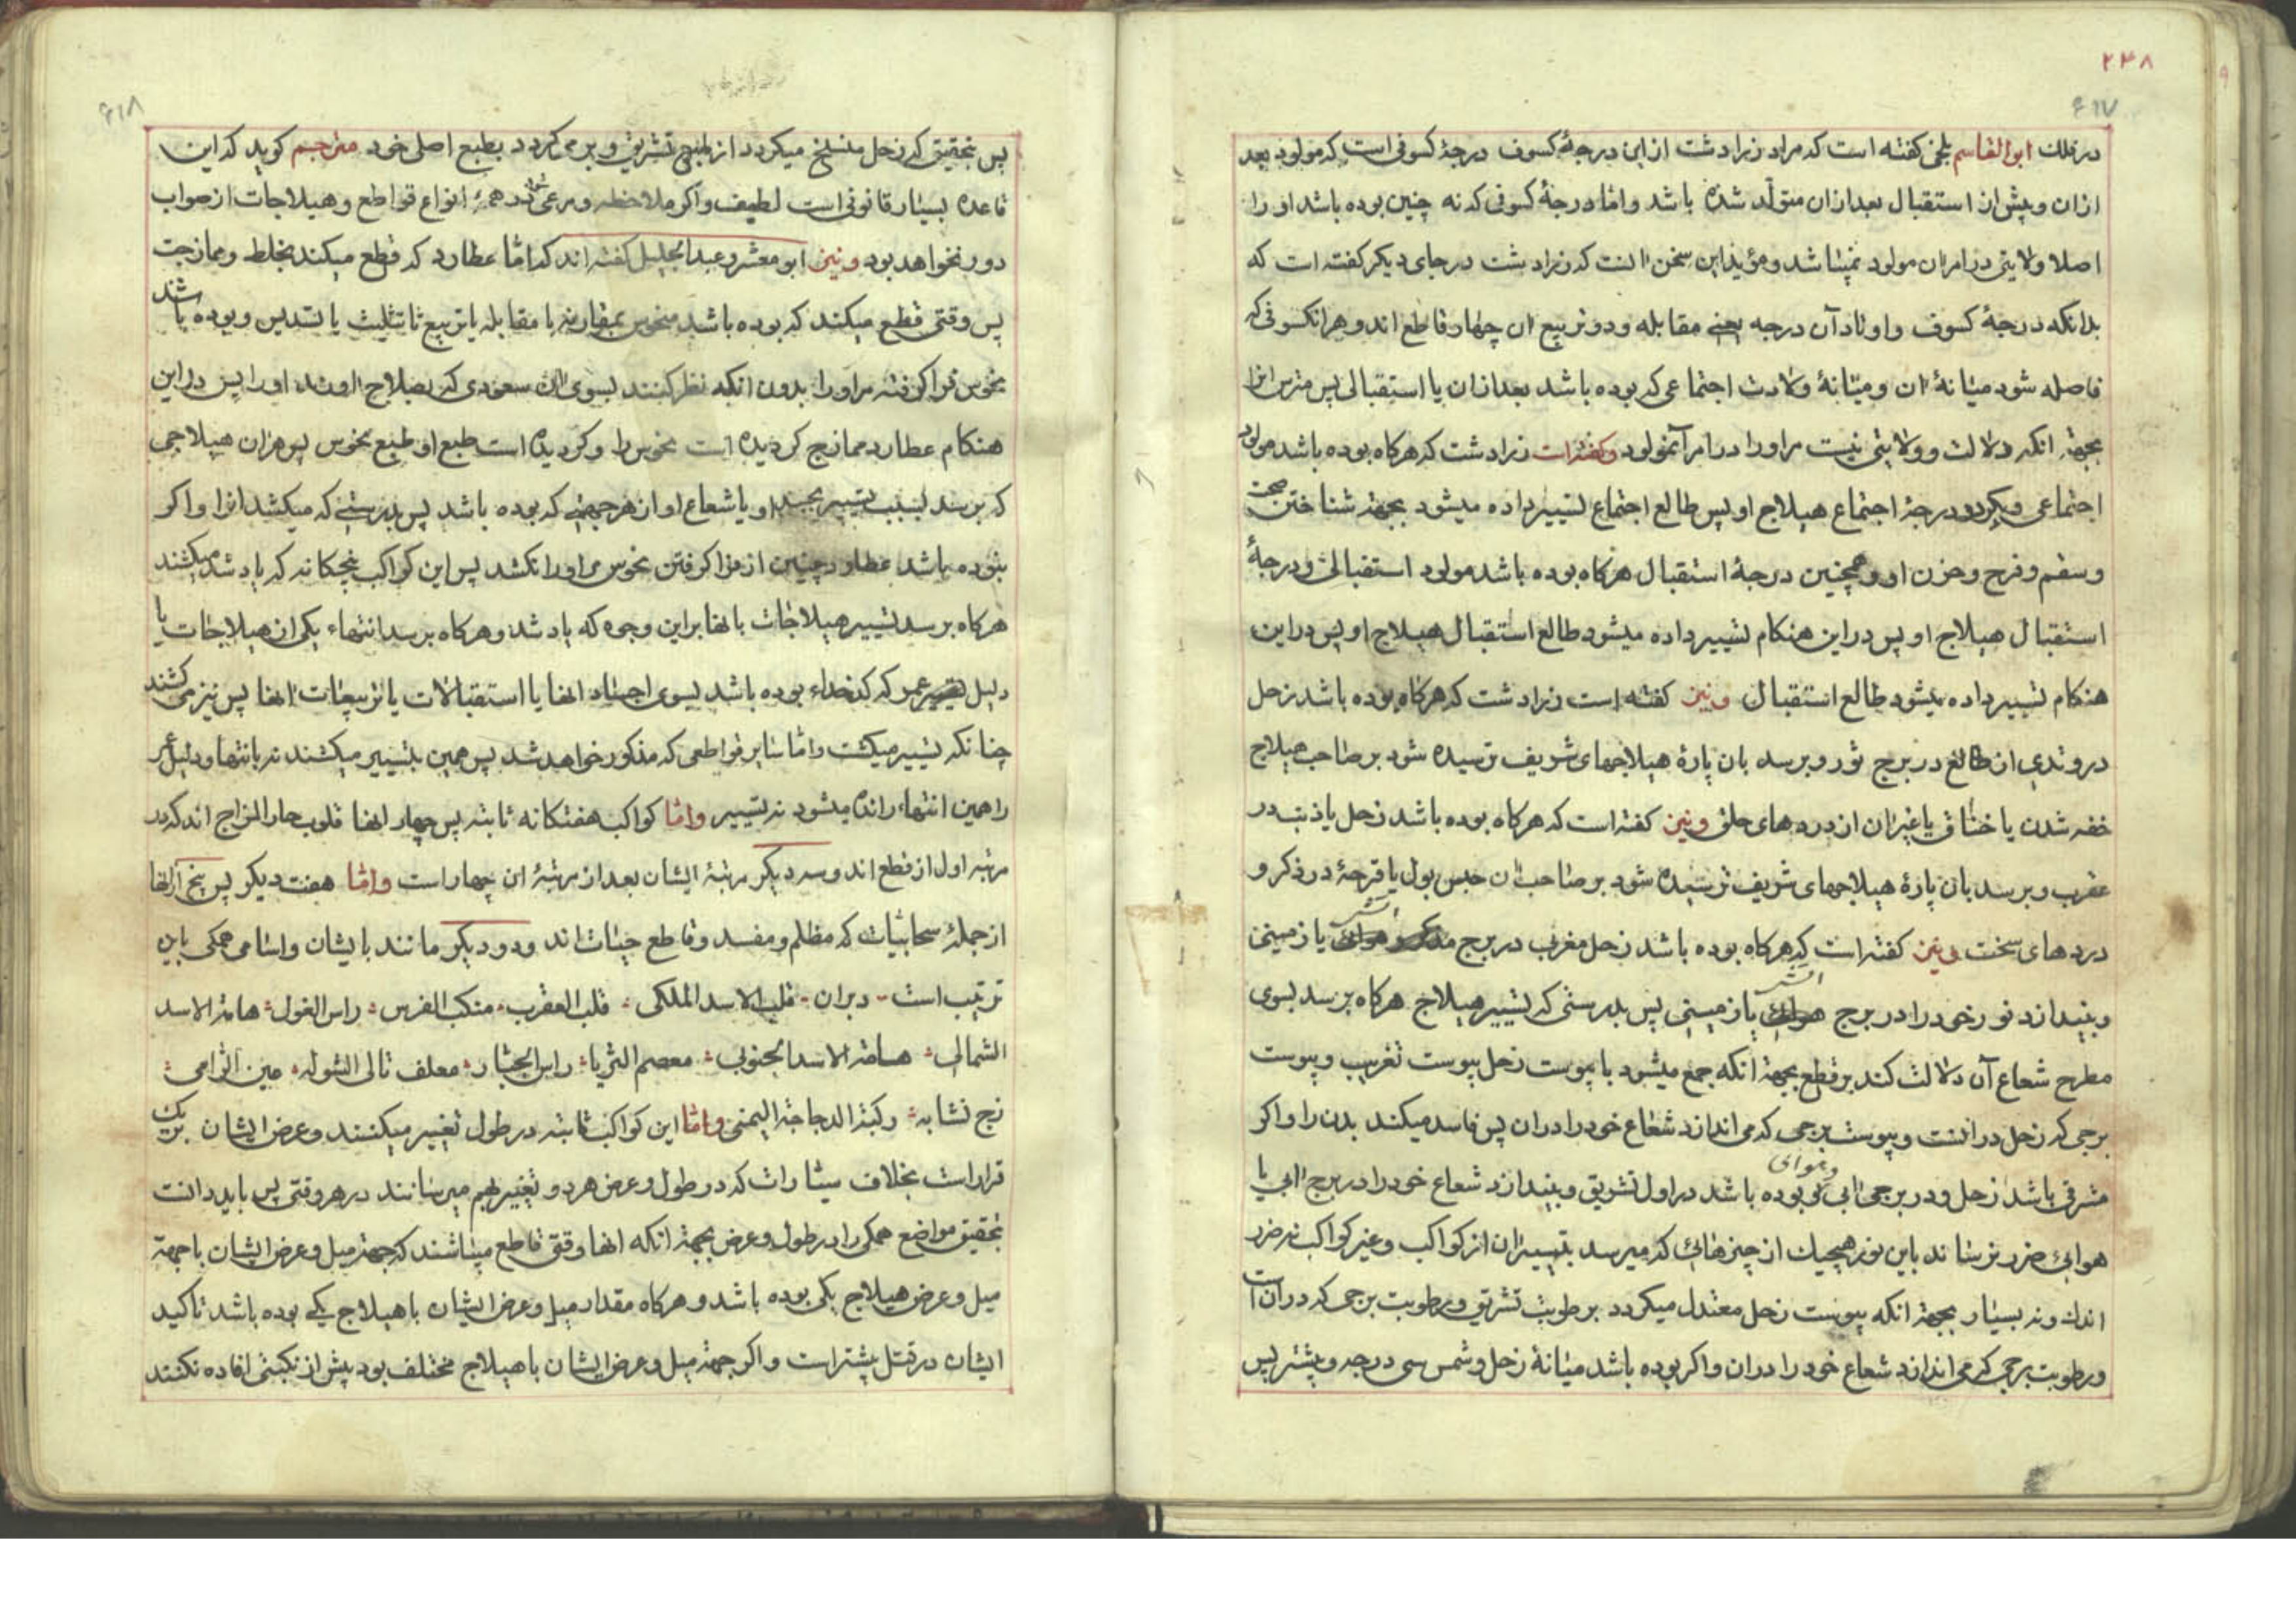 ۲۳۸
۶۱۷
در فلک ابوالقاسم بلخی کفته است که مراد زرادشت از این درجهٔ کسوف درجهٔ کسوفی است که مولود بعد
از ان و پیش از استقبال بعد از ان متولّد شده باشد و امّا درجهٔ کسوفی که نه چنین بوده باشد او را
اصلا ولایتی در امر ان مولود نمیباشد و مؤید این سخن انست که زرادشت در جای دیکر کفته است که
بدانکه درجهٔ کسوف و اوتاد آن درجه یعنی مقابله و دو تربیع ان چهار قاطع اند و هر انکسوفی که
فاصله شود میانهٔ ان و میانهٔ ولادت اجتماعی که بوده باشد بعد از ان یا استقبالی پس مترس انرا
بجهة انکه دلالت و ولایتی نیست مر او را در امر آنمولود و کفته است زرادشت که هرکاه بوده باشد مولود
اجتماعی و بکردد درجهٔ اجتماع هیلاج او پس طالع اجتماع تسییر داده میشود بجهة شناختن صحت
و سقم و فرح و حزن او و همچنین درجهٔ استقبال هرکاه بوده باشد مولود استقبالی و درجهٔ
استقبال هیلاج او پس در این هنکام تسییر داده میشود طالع استقبال هیلاج او پس در این
هنکام تسییر داده میشود طالع استقبال و نیز کفته است زرادشت که هرکاه بوده باشد زحل
در وتدی از طالع در برج ثور و برسد بان پارهٔ هیلاجهای شریف ترسیده شود بر صاحب هیلاج
خفه شدن یا خناق یا غیر ان از دردهای حلق و نیز کفته است که هرکاه بوده باشد زحل یا ذنب در
عقرب و برسد بان پارهٔ هیلاجهای شریف ترسیده شود بر صاحب ان حبس بول یا قرحهٔ در ذکر و
دردهای سخت و نیز کفته است که هرکاه بوده باشد زحل مغرب در برج آتشی یا زمینی
و بیندازد نور خود را در برج آتشی یا زمینی پس بدرستی که تسییر هیلاج هرکاه برسد بسوی
مطرح شعاع آن دلالت کند بر قطع بجهة انکه جمع میشود با یبوست زحل یبوست تغریب و یبوست
برجی که زحل در انست و یبوست برجی که می اندازد شعاع خود را در ان پس فاسد میکند بدن را و اکر
مشرقی باشد زحل و در برجی ابی و هوای بوده باشد در اول تشریق و بیندازد شعاع خود را در برج ابی یا
هوایی ضرر نرساند باین نوع هیچیک از چیزهائی که میرسد بتسییر ان از کواکب و غیر کواکب نه ضرر
اندک و نه بسیار بجهة انکه یبوست زحل معتدل میکردد برطوبت تشریق و برطوبت برجی که در ان است
و رطوبت برجی که می اندازد شعاع خود را در ان و اکر بوده باشد میانهٔ زحل و شمس سی درجه و بیشتر پس
۶۱۸
پس بتحقیق که زحل منسلخ میکردد از طبع تشریق و برمی کردد بطبع اصلی خود مترجم کوید که این
قاعده بسیار قانونی است لطیف و اکر ملاحظه و مرعی در همهٔ انواع قواطع و هیلاجات از صواب
دور نخواهد بود و نیز ابو معشر و عبدالجلیل کفته اند که امّا عطارد که قطع میکند بخلط و ممازجت
پس وقتی قطع میکند که بوده باشد منحوس بمقارنه یا مقابله یا تربیع یا تثلیث یا تسدیس و بوده باشد
نحوس فرا کرفته مر او را بدون انکه نظر کنند بسوی ان سعودی که بصلاح اورند او را پس در این
هنکام عطارد ممازج کردیده است نحوس را و کردیده است طبع او طبع نحوس پس هر ان هیلاجی
که برسد بسبب تسییر بجسد او یا شعاع او از هر جهتی که بوده باشد پس بدرستی که میکشد انرا و اکر
نبوده باشد عطارد چنین از فرا کرفتن نحوس مر او را نکشد پس این کواکب پنجکانه که یاد شد میکشند
هرکاه برسد تسییر هیلاجات بانها بر این وجوه که یاد شد و هرکاه برسد انتهاء یکی از هیلاجات یا
دلیل عمر که کدخداء بوده باشد بسوی اجساد انها یا استقبالات یا تربیعات انها پس نیز می کشند
چنانکه تسییر میکشت و امّا سایر قواطعی که مذکور خواهد شد پس همین بتسییر میکشند نه بانتها و دلیل عمر
را همین انتهاء رانده میشود نه تسییر و امّا کواکب هفتکانه ثابته پس چهار انها قلوب حار المزاج اند که در
مرتبه اول از قطع اند و سه دیکر مرتبهٔ ایشان بعد از مرتبهٔ ان چهار است و امّا هفت دیکر پس پنج از انها
از جملهٔ سحابیات که مظلم و مفسد و قاطع حیات اند و دو دیکر مانند بایشان و اسامی همکی باین
ترتیب است دبران قلب الاسد الملکی قلب العقرب منکب الفرس راس الغول هامة الاسد
الشمالی هامة الاسد الجنوبی معصم الثریا راس الجبار معلف تالی الشوله عین الرامی
زج نشابه رکبة الدجاجة الیمنی و امّا این کواکب ثابته در طول تغییر میکنند و عرض ایشان بریک
قرار است بخلاف سیارات که در طول و عرض هر دو تغییر بهم میرسانند در هر وقتی پس باید دانست
بتحقیق مواضع همکی را در طول و عرض بجهة انکه انها وقتی قاطع میباشند که جهة میل و عرض ایشان با جهة
میل و عرض هیلاج یکی بوده باشد و هرکاه مقدار میل و عرض ایشان با هیلاج یکی بوده باشد تاکید
ایشان در قتل بیشتر است و اکر جهة میل و عرض ایشان با هیلاج مختلف بود بیش از نکبتی افاده نکنند